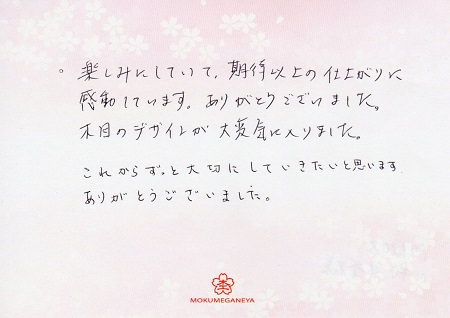 。楽しみにしていて、期待以上の仕上がりに
感動しています。ありがとうございました。
木目のデザインが大変気に入りました。
これからずっと大切にしていきたいと思います
ありがとうございました。
MOKUMEGANEYA